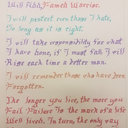 I will protect even those I hate,
So long as it is right.
I will take responsibility for what
I have done, if I must fall I will
Rise each time a better man.
I will remember those who have been
Forgotten.
The longer you live, the more you
Fail. Failure is the mark of a life
Well lived. In turn, the only way